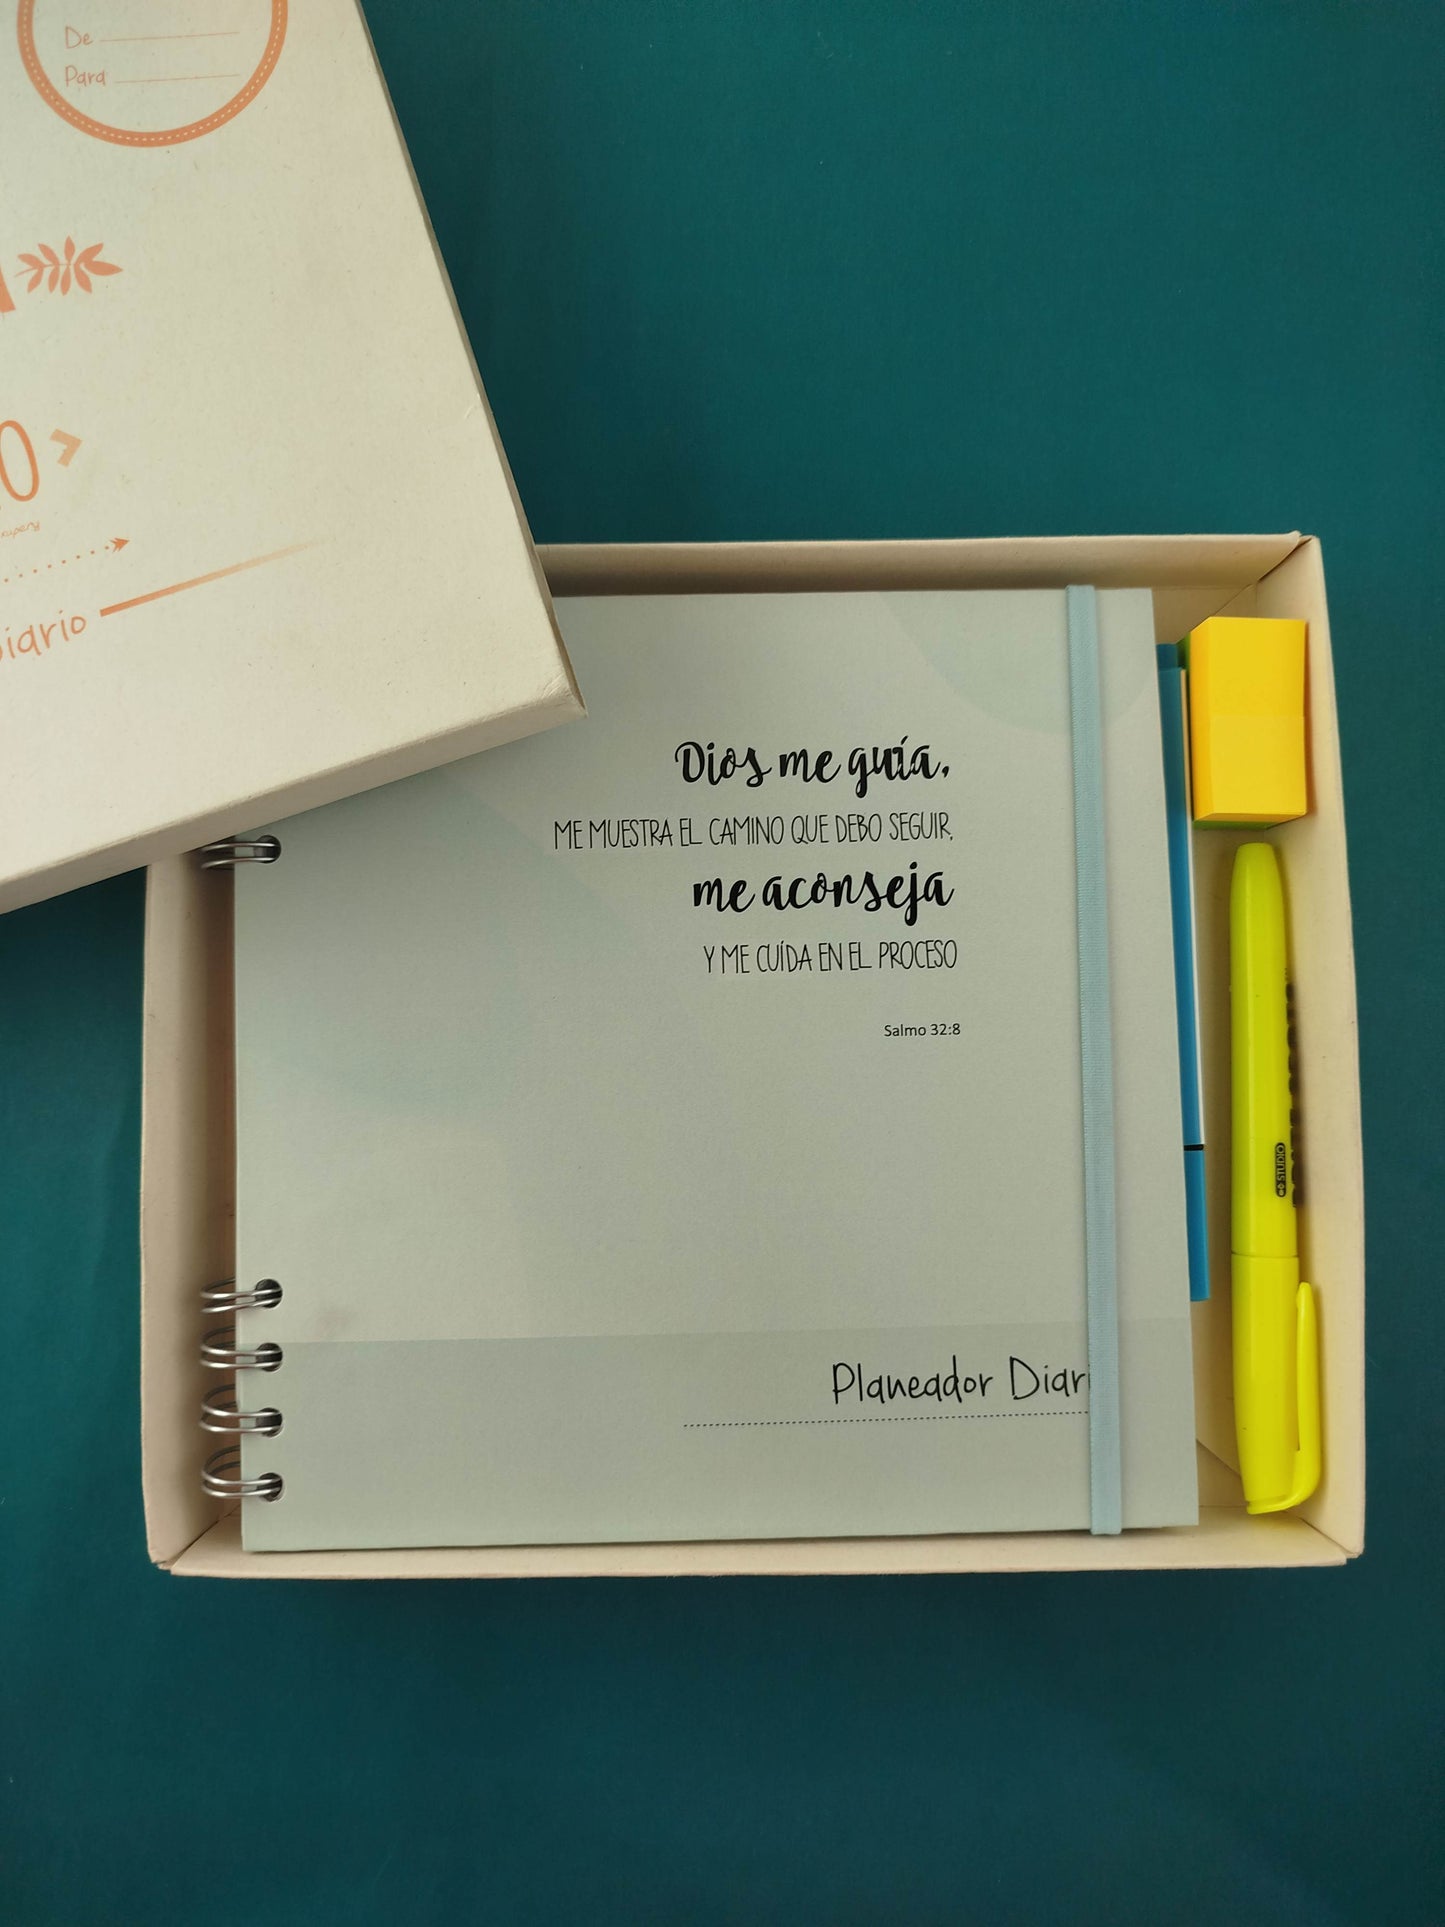 De
Para
Diario
Dios me guía,
ME MUESTRA EL CAMINO QUE DEBO SEGUIR,
me aconseja
Y ME CUÍDA EN EL PROCESO
Salmo 32:8
Planeador Diari
STUDIO